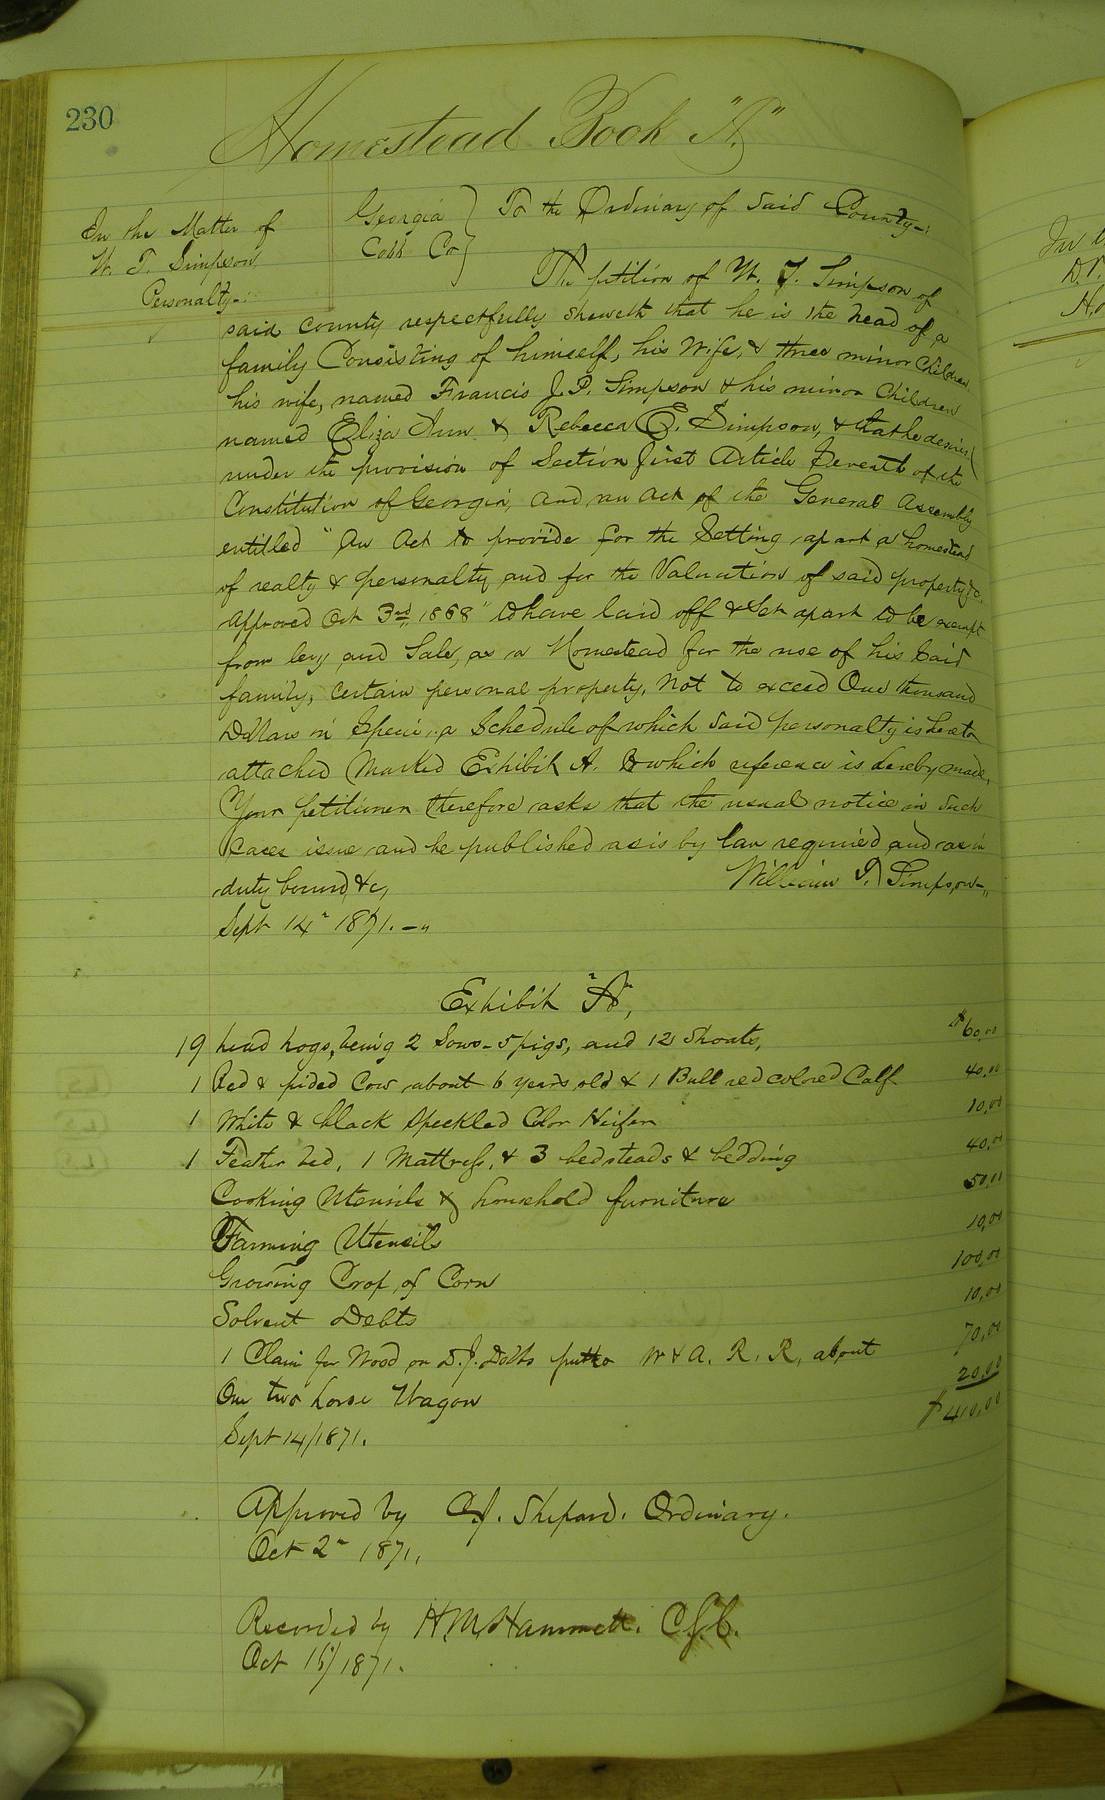 230
Homestead Book "A"
In the Matter of
W. T. Simpson
Personalty
Georgia
Cobb Co
To the Ordinary of said County:
The petition of W. T. Simpson of
said county respectfully sheweth that he is the head of a
family Consisting of himself, his wife, & three minor Children
his wife, named Francis J. P. Simpson & his minor Children
named Eliza Ann & Rebecca E. Simpson, & that he desires
under the provision of Section first Article Seventh of the
Constitution of Georgia, and an act of the General Assembly
entitled "An Act to provide for the Setting apart a homestead
of realty & personalty, and for the Valuation of said property &c.
approved Oct 3rd, 1868" to have laid off & Set apart to be exempt
from levy and Sale, as a Homestead for the use of his Said
family, Certain personal property, not to exceed One thousand
Dollars in Specie, a Schedule of which said personalty is hereto
attached Marked Exhibit A. to which reference is hereby made.
Your petitioner therefore asks that the usual notice in such
Cases issue and be published as is by law required and as in
duty bound, &c,
William T. Simpson
Sept 14" 1871.
Exhibit "A",
19 head hogs, being 2 Sows - 5 pigs, and 12 Shoats, $60.00
1 Red & pided Cow about 6 years old & 1 Bull red colored Calf 40.00
1 White & black Speckled Color Heifer 10.00
1 Feather bed, 1 Mattress, & 3 bedsteads & bedding 40.00
Cooking Utensils & household furniture 50.00
Farming Utensils 10.00
Growing Crop of Corn 100.00
Solvent Debts 10.00
1 Claim for Wood on D. J. Dobbs W & A. R. R, about 70.00
One two horse Wagon 20.00
Sept 14/1871. $410.00
Approved by C. J. Shepard. Ordinary.
Oct 2" 1871,
Recorded by H M Hammett. C.S.C.
Oct 1871.
In
D.
Ho